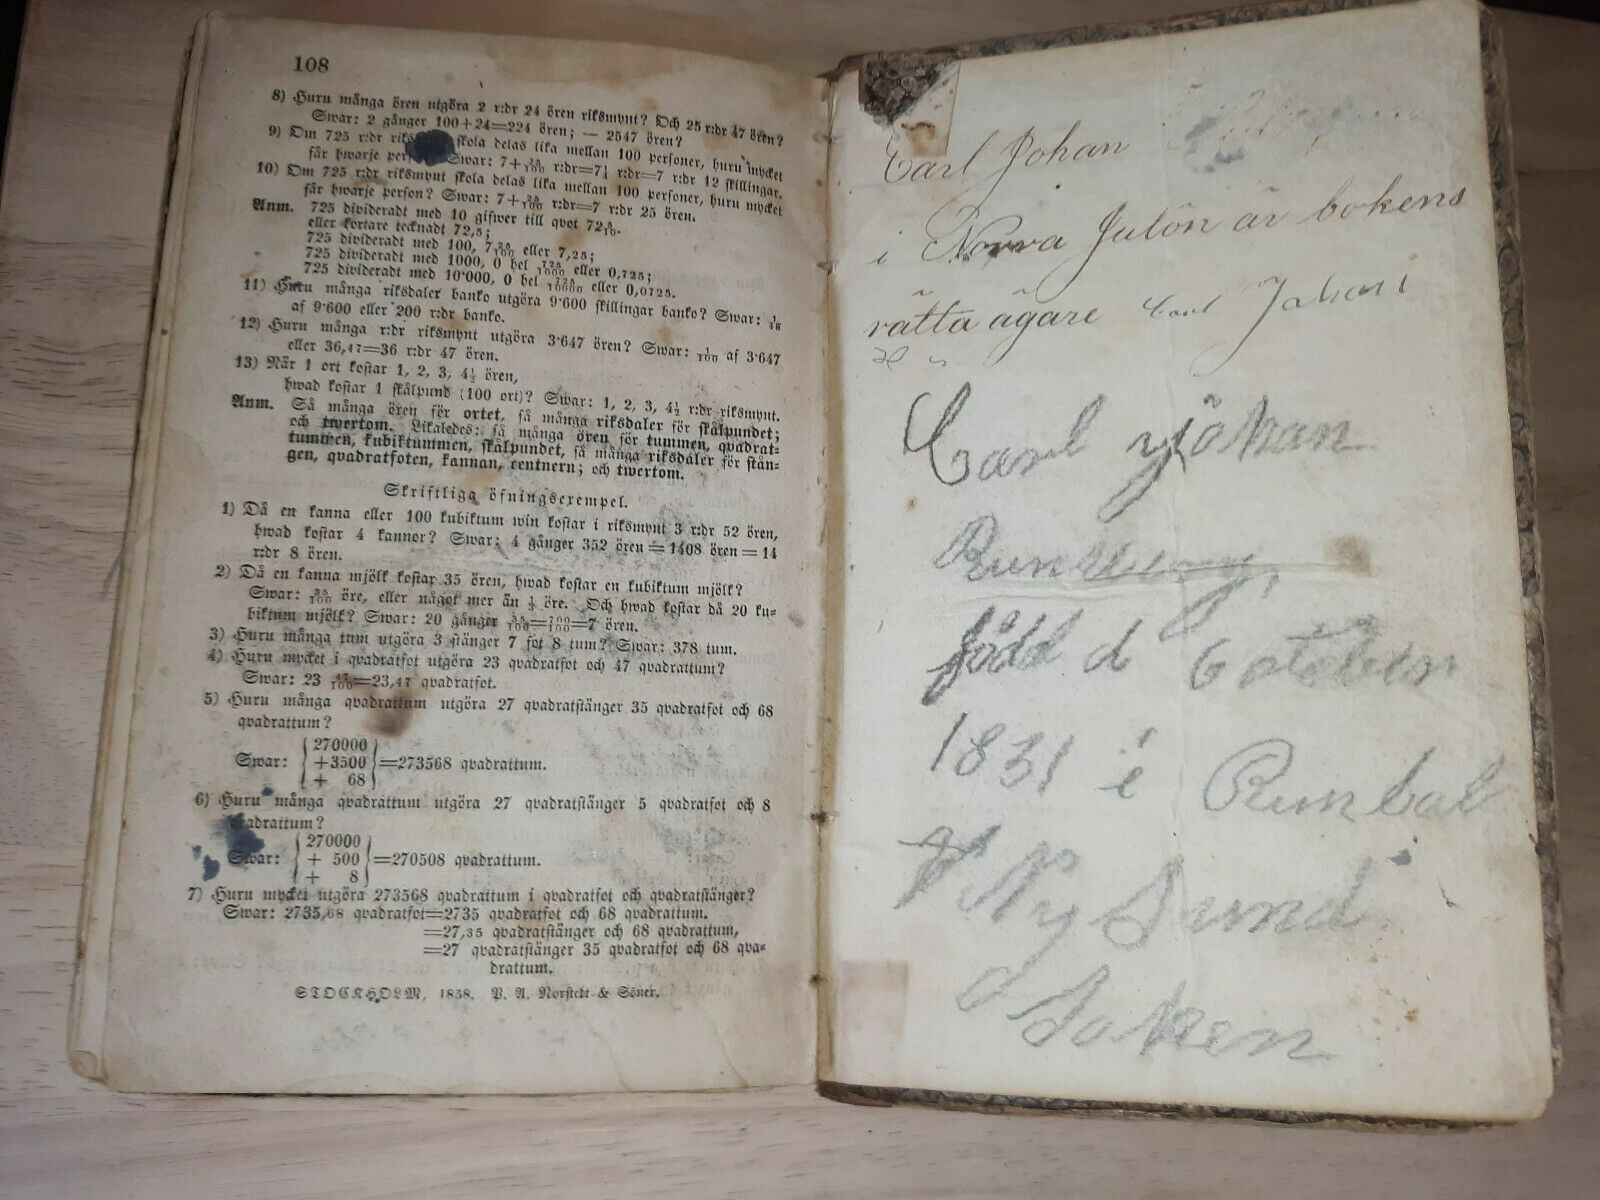 108
8) Huru många ören utgöra 2 r:dr 24 ören riksmynt? Och 25 r:dr 47 ören?
Swar: 2 gånger 100+24=224 ören; — 2547 ören?
9) Om 725 r:dr skola delas lika mellan 100 personer, huru mycket
får hwarje Swar: 7+25/100 r:dr=7¼ r:dr=7 r:dr 12 skillingar.
10) Om 725 r:dr riksmynt skola delas lika mellan 100 personer, huru mycket
får hwarje person? Swar: 7+25/100 r:dr=7 r:dr 25 ören.
Anm. 725 divideradt med 10 gifwer till qvot 72 5/10.
eller kortare tecknadt 72,5;
725 divideradt med 100, 7 25/100 eller 7,25;
725 divideradt med 1000, 0 hel 725/1000 eller 0,725;
725 divideradt med 10'000, 0 hel 725/10000 eller 0,0725.
11) Huru många riksdaler banko utgöra 9'600 skillingar banko? Swar: 1/48
af 9'600 eller 200 r:dr banko.
12) Huru många r:dr riksmynt utgöra 3'647 ören? Swar: 1/100 af 3'647
eller 36,47=36 r:dr 47 ören.
13) När 1 ort kostar 1, 2, 3, 4½ ören,
hwad kostar 1 skålpund (100 ort)? Swar: 1, 2, 3, 4½ r:dr riksmynt.
Anm. Så många ören för ortet, så många riksdaler för skålpundet;
och twertom. Likaledes: så många ören för tummen, qvadrat-
tummen, kubiktummen, skålpundet, så många riksdaler för stån-
gen, qvadratfoten, kannan, centnern; och twertom.
Skriftliga öfningsexempel.
1) Då en kanna eller 100 kubiktum win kostar i riksmynt 3 r:dr 52 ören,
hwad kostar 4 kannor? Swar: 4 gånger 352 ören=1408 ören=14
r:dr 8 ören.
2) Då en kanna mjölk kostar 35 ören, hwad kostar en kubiktum mjölk?
Swar: 35/100 öre, eller något mer än ⅓ öre. Och hwad kostar då 20 ku-
biktum mjölk? Swar: 20 gånger 35/100=700/100=7 ören.
3) Huru många tum utgöra 3 stänger 7 fot 8 tum? Swar: 378 tum.
4) Huru mycket i qvadratfot utgöra 23 qvadratfot och 47 qvadrattum?
Swar: 23 47/100=23,47 qvadratfot.
5) Huru många qvadrattum utgöra 27 qvadratstänger 35 qvadratfot och 68
qvadrattum?
270000
Swar: +3500 =273568 qvadrattum.
+ 68
6) Huru många qvadrattum utgöra 27 qvadratstänger 5 qvadratfot och 8
qvadrattum?
270000
Swar: + 500 =270508 qvadrattum.
+ 8
7) Huru mycket utgöra 273568 qvadrattum i qvadratfot och qvadratstänger?
Swar: 2735,68 qvadratfot=2735 qvadratfot och 68 qvadrattum.
=27,35 qvadratstänger och 68 qvadrattum,
=27 qvadratstänger 35 qvadratfot och 68 qva-
drattum.
STOCKHOLM, 1858. P. A. Norstedt & Söner.
Carl Johan
i Norra Julön är bokens
rätta ägare Carl Johan
Carl Johan
född d 6 october
1831 i
Ny Sund
Soken